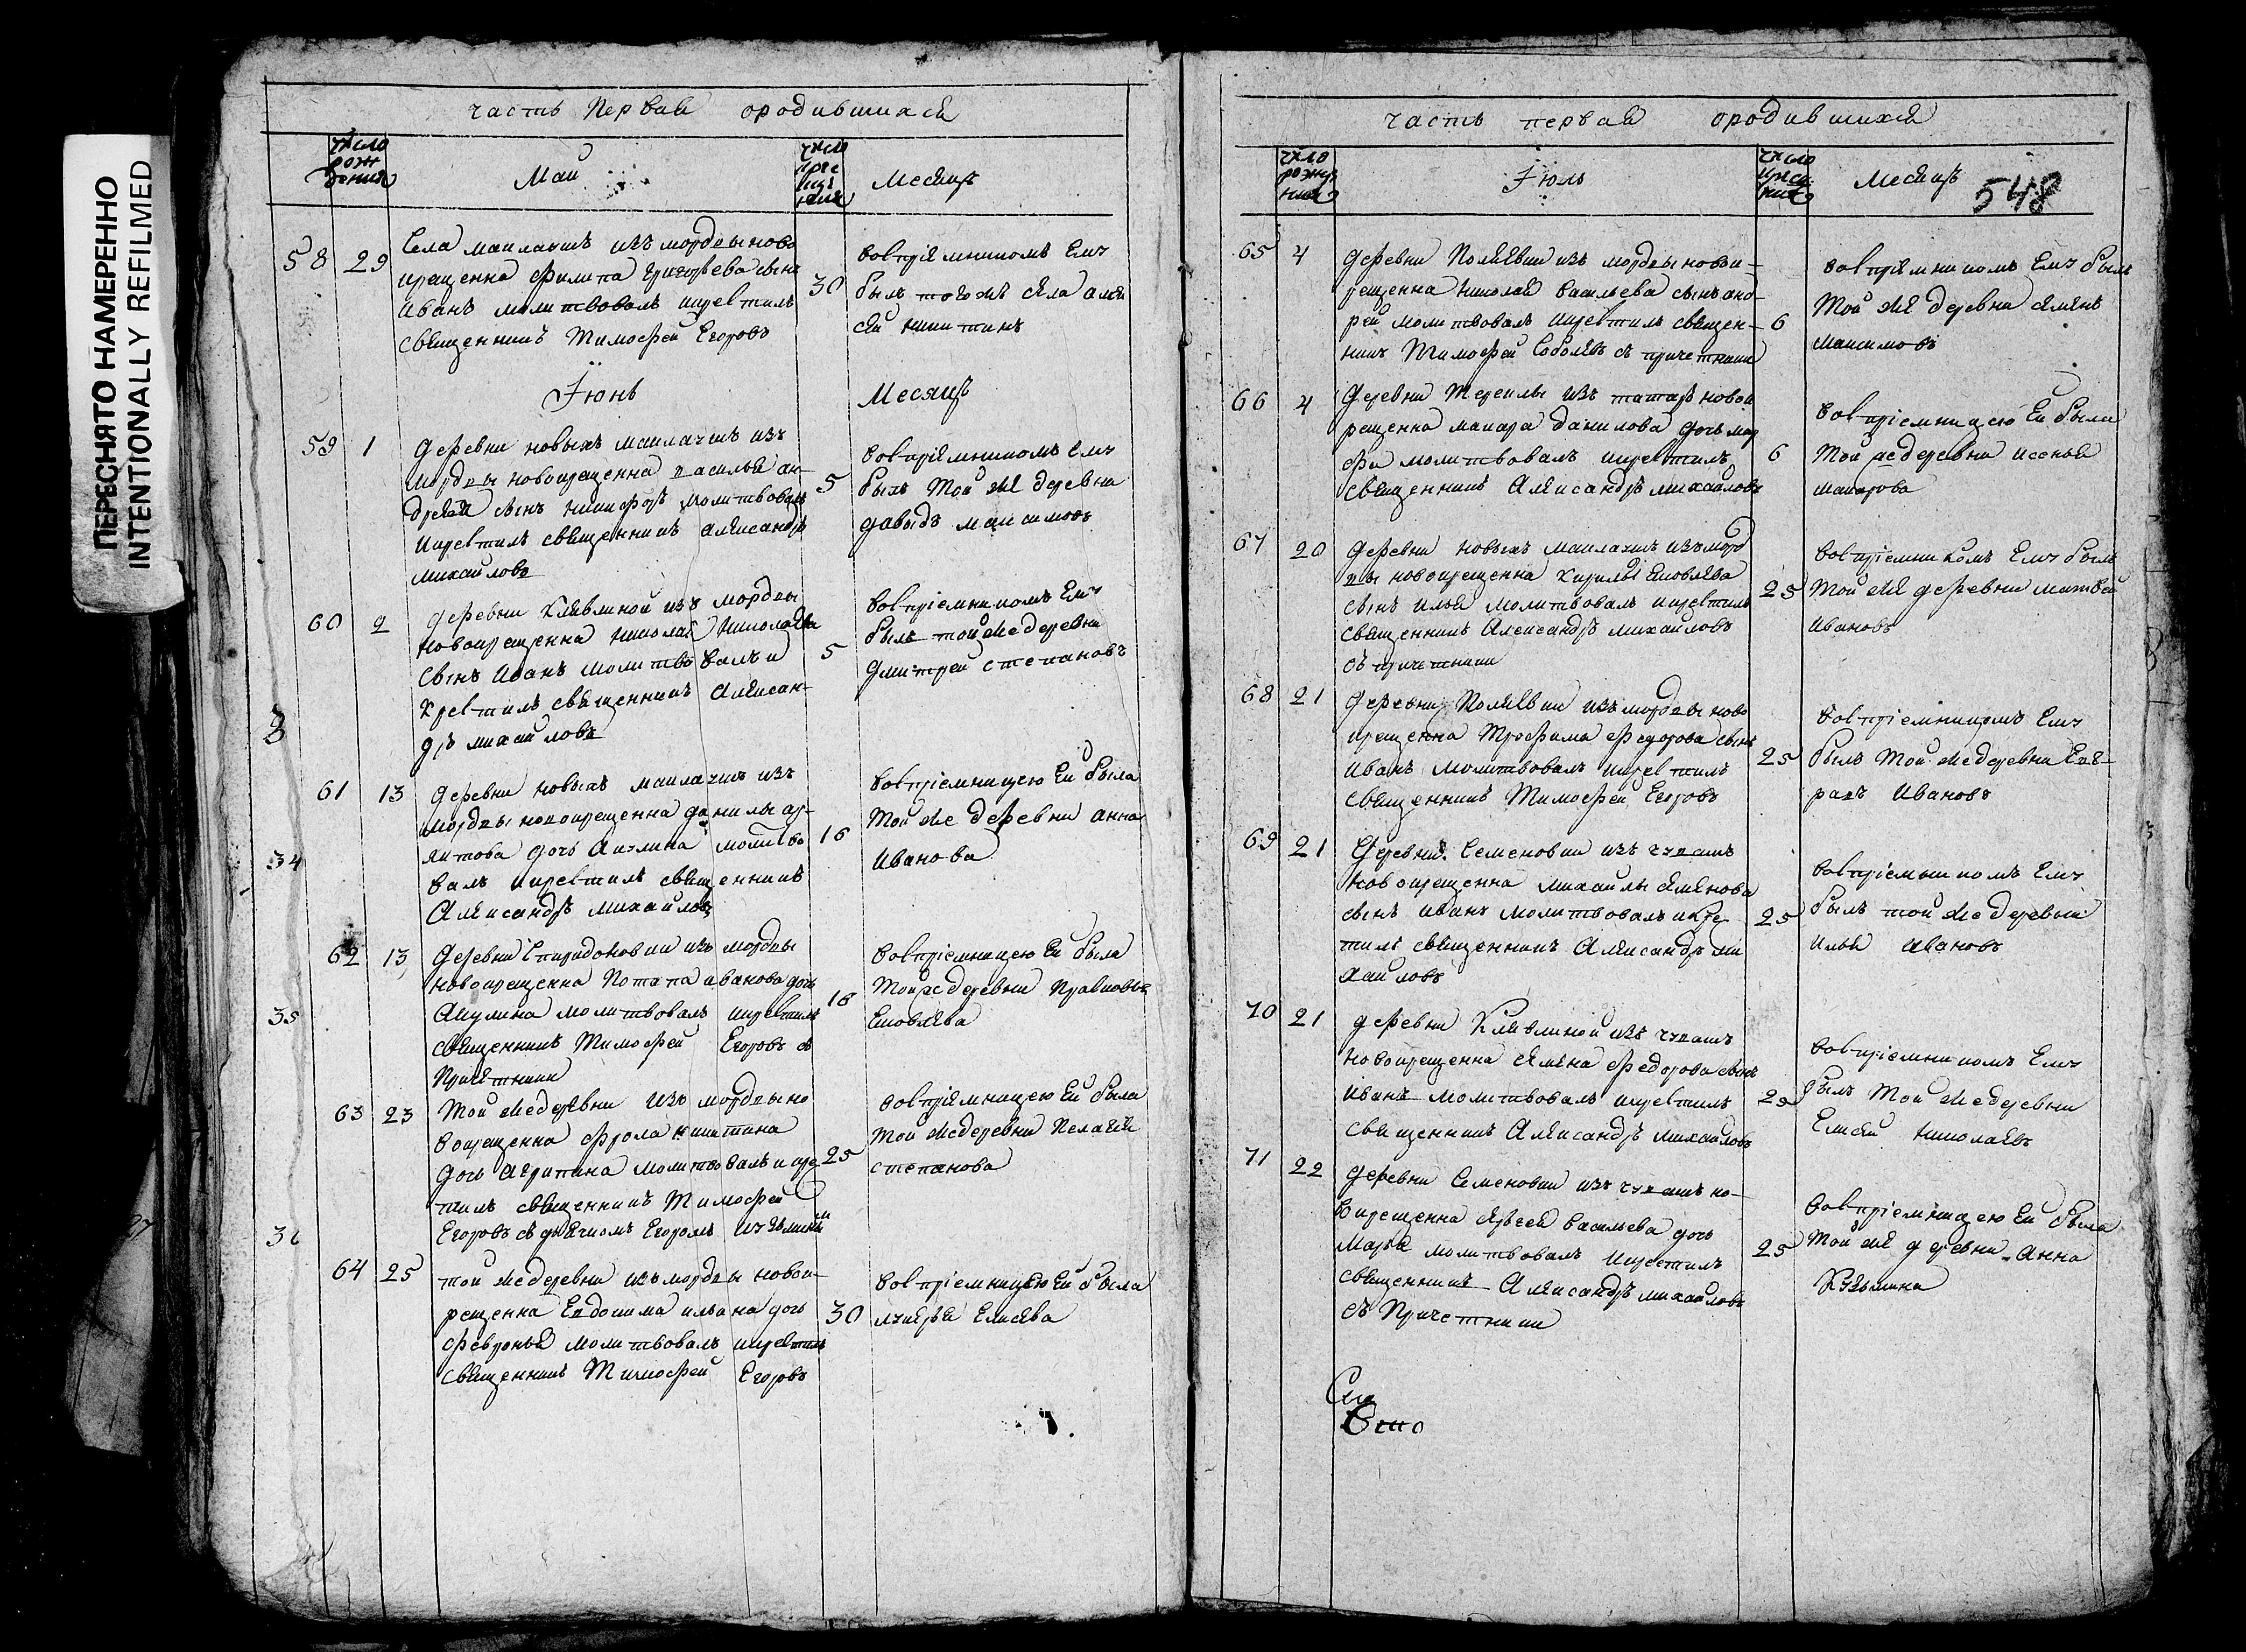 ПЕРЕСНЯТО НАМЕРЕННО
INTENTIONALLY REFILMED
часть Первая ородившихся
число рождения
Май
число крещения
Месяцъ
58 29
Села маклаушъ изъ мордвы ново
крещенна филипа Григорьева сынъ
иванъ молитвовалъ икрестилъ
священникъ Тимофей Егоровъ
30
воспріемникомъ Ему
былъ тогожъ села алек
сей никитинъ
Іюнь
Месяцъ
59 1
деревни новыхъ маклаушъ изъ
мордвы новокрещенна василья ан-
дреева сынъ никифоръ молитвовалъ
икрестилъ священникъ александръ
михайловъ
5
воспріемникомъ ему
былъ той же деревни
давыдъ максимовъ
60 2
деревни Клявлиной изъ мордвы
новокрещенна николая николаева
сынъ иванъ молитвовалъ и
крестилъ священникъ алексан-
дръ михайловъ
5
воспріемникомъ Ему
былъ тойже деревни
дмитрей степановъ
61 13
деревни новыхъ маклаушъ изъ
мордвы новокрещенна данилы
дочь Акулина молитво
валъ икрестилъ священникъ
Александръ михайловъ
16
воспріемницею Ей была
той же деревни анна
иванова
62 13
деревни Спиридоновки изъ мордвы
новокрещенна Потапа иванова дочь
Акулина молитвовалъ икрестилъ
священникъ Тимофей Егоровъ съ
Причетники
16
воспріемницею Ей была
тойже деревни Прасковья
Яковлева
63 23
той же деревни изъ мордвы но
вокрещенна фрола никитина
дочь агрипина молитвовалъ и кре
тилъ священникъ Тимофей
Егоровъ съ дьячкомъ Егоромъ
25
воспріемницею Ей была
той же деревни Пелагея
степанова
64 25
той же деревни изъ мордвы новок-
рещенна Евдокима ильина дочь
февронья молитвовалъ икрестилъ
священникъ Тимофей Егоровъ
30
воспріемницею Ей была
лукерья Елисеева
34
35
часть первая ородившихся
число рождения
Іюль
число крещения
Месяцъ
548
65 4
деревни Полаевки изъ мордвы новок-
рещенна николая васильева сынъ анд-
рей молитвовалъ икрестилъ священ-
никъ Тимофей Соболевъ съ причетники
6
воспріемникомъ Ему былъ
Той же деревни семенъ
максимовъ
66 4
деревни Териклы изъ татаръ новок
рещенна макара данилова дочь мар
фа молитвовалъ икрестилъ
священникъ Александръ михайловъ
6
воспріемницею Ей была
Той же деревни
макарова
67 20
деревни новыхъ маклаушъ изъ морд
вы новокрещенна Кирилы яковлева
сынъ илья молитвовалъ икрестилъ
священникъ Александръ михайловъ
съ причетники
25
воспріемникомъ Ему былъ
той же деревни матвей
ивановъ
68 21
деревни Полаевки изъ мордвы ново
крещенна Трофима федорова сынъ
иванъ молитвовалъ икрестилъ
священникъ Тимофей Егоровъ
25
воспріемникомъ Ему
былъ Той же деревни Евг-
рафъ ивановъ
69 21
деревни Семеновки изъ чувашъ
новокрещенна михайлы семенова
сынъ иванъ молитвовалъ икре
тилъ священникъ Александръ ми
хайловъ
25
воспріемникомъ Ему
былъ той же деревни
илья ивановъ
70 21
деревни Клявлиной изъ чувашъ
новокрещенна семена федорова сынъ
иванъ молитвовалъ икрестилъ
священникъ Александръ михайловъ
25
воспріемникомъ Ему
былъ Той же деревни
Елисей николаевъ
71 22
деревни Семеновки изъ чувашъ но-
вокрещенна васильева дочь
марья молитвовалъ икрестилъ
священникъ Александръ михайловъ
съ Причетники
25
воспріемницею Ей была
Той же деревни анна
Кузьмина